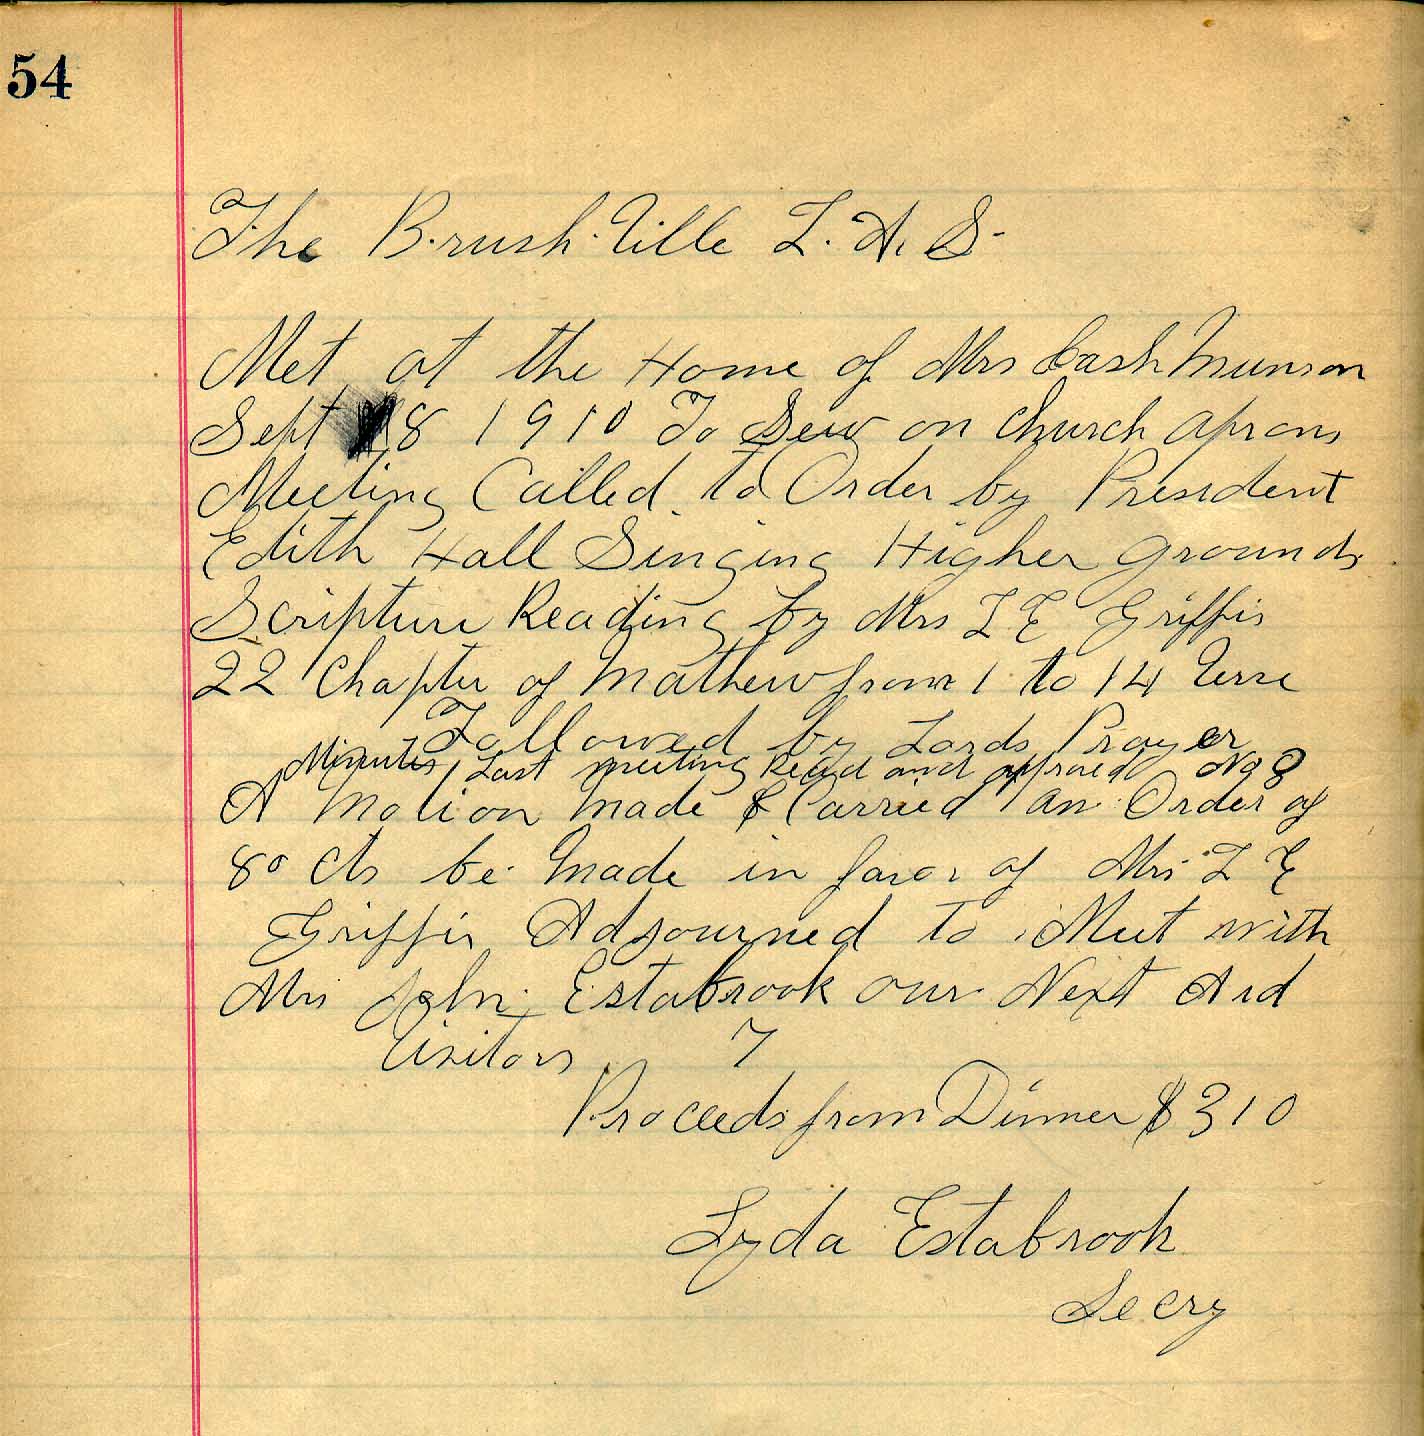 54
The Brushville L. A. S.
Met at the Home of Mrs Cash Munson
Sept 8 1910 To Sew on Church aprons
Meeting Called to Order by President
Edith Hall Singing Higher Grounds
Scripture Reading by Mrs L E Griffis
22 Chapter of Mathew from 1 to 14 Verse
Followed by Lords Prayer
Minutes Last meeting Read and approved No 8
A Motion Made & Carried an Order of
80 cts be Made in favor of Mrs L E
Griffis Adjourned to Meet with
Mrs John Estabrook our Next Aid
Visitors 7
Proceeds from Dinner $3 10
Lyda Estabrook
Secry